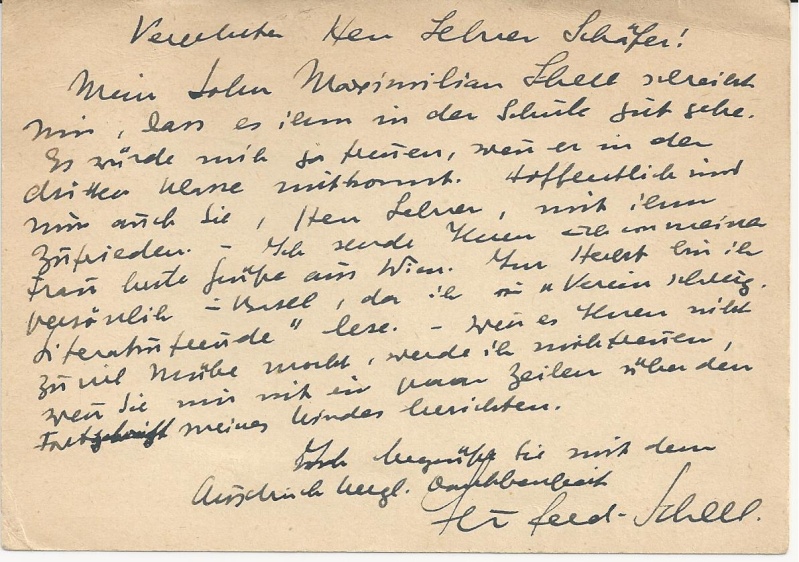 Verehrter Herr Lehrer Schäfer!
Mein Sohn Maximilian Schell schreibt
mir, dass es ihm in der Schule gut gehe.
Es würde mich ja freuen, wen er in der
dritten Klasse mitkommt. Hoffentlich sind
nun auch Sie, Herr Lehrer, mit ihm
zufrieden. – Ich sende Ihnen auch von meiner
Frau beste Grüße aus Wien. Im Herbst bin ich
persönlich in Basel, da ich im "Verein schweiz.
Literaturfreunde" lese. – Wen es Ihnen nicht
zuviel Mühe macht, werde ich mich freuen,
wen Sie mir mit ein paar Zeilen über den
meines Kindes berichten.
Ich begrüße Sie mit dem
Ausdruck vorzgl. Dankbarkeit
Schell.